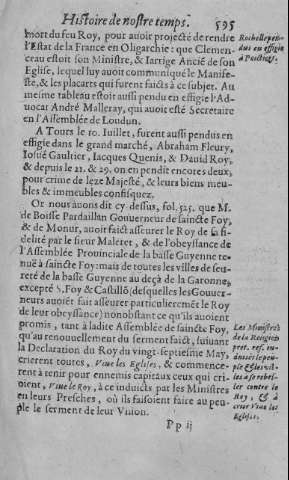 Histoire de nostre temps. 595
mort du feu Roy, pour auoir projecté de rendre
l'Estat de la France en Oligarchie: que Clemen-
ceau estoit son Ministre, & Iarrige Anciē de son
Eglise, lequel luy auoit communiqué le Manife-
ste, & les placarts qui furent faicts à ce subjet. Au
mesme tableau estoit aussi pendu en effigie l'Ad-
uocat André Malleray, qui auoit esté Secretaire
en l'Assemblée de Loudun.
A Tours le 10. Iuillet, furent aussi pendus en
effigie dans le grand marché, Abraham Fleury,
Iosué Gaultier, Iacques Quenis, & Dauid Roy,
& depuis le 21. & 29. on en pendit encores deux,
pour crime de leze Majesté, & leurs biens meu-
bles & immeubles confisquez.
Or nous auons dit cy-dessus, fol. 525. que M.
de Boisse Pardaillan Gouuerneur de saincte Foy,
& de Monur, auoit faict asseurer le Roy de sa fi-
delité par le sieur Maleret, & de l'obeyssance de
l'Assemblée Prouinciale de la basse Guyenne te-
nuë à saincte Foy: mais de toutes les villes de seu-
reté de la basse Guyenne au deçà de la Garonne,
excepté S. Foy & Castillō (desquelles les Gouuer-
neurs auoiēt fait asseurer particulieremēt le Roy
de leur obeyssance) nonobstant ce qu'ils auoient
promis, tant à ladite Assemblée de saincte Foy,
qu'au renouuellement du serment faict, suiuant
la Declaration du Roy du vingt-septiesme May,
crierent toutes, Viue les Eglises, & commence-
rent à tenir pour ennemis capitaux ceux qui cri-
oient, Viue le Roy, à ce induicts par les Ministres
en leurs Presches, où ils faisoient faire au peu-
ple le serment de leur Vnion.
Pp ij
Rochelle pen-
due en effigie
à Poictiers.
Les Ministres
de la Religion
pret. ref. in-
duisēt le peu-
ple
à se rebel-
ler contre le
Roy, & à
crier Viue les
Eglises.